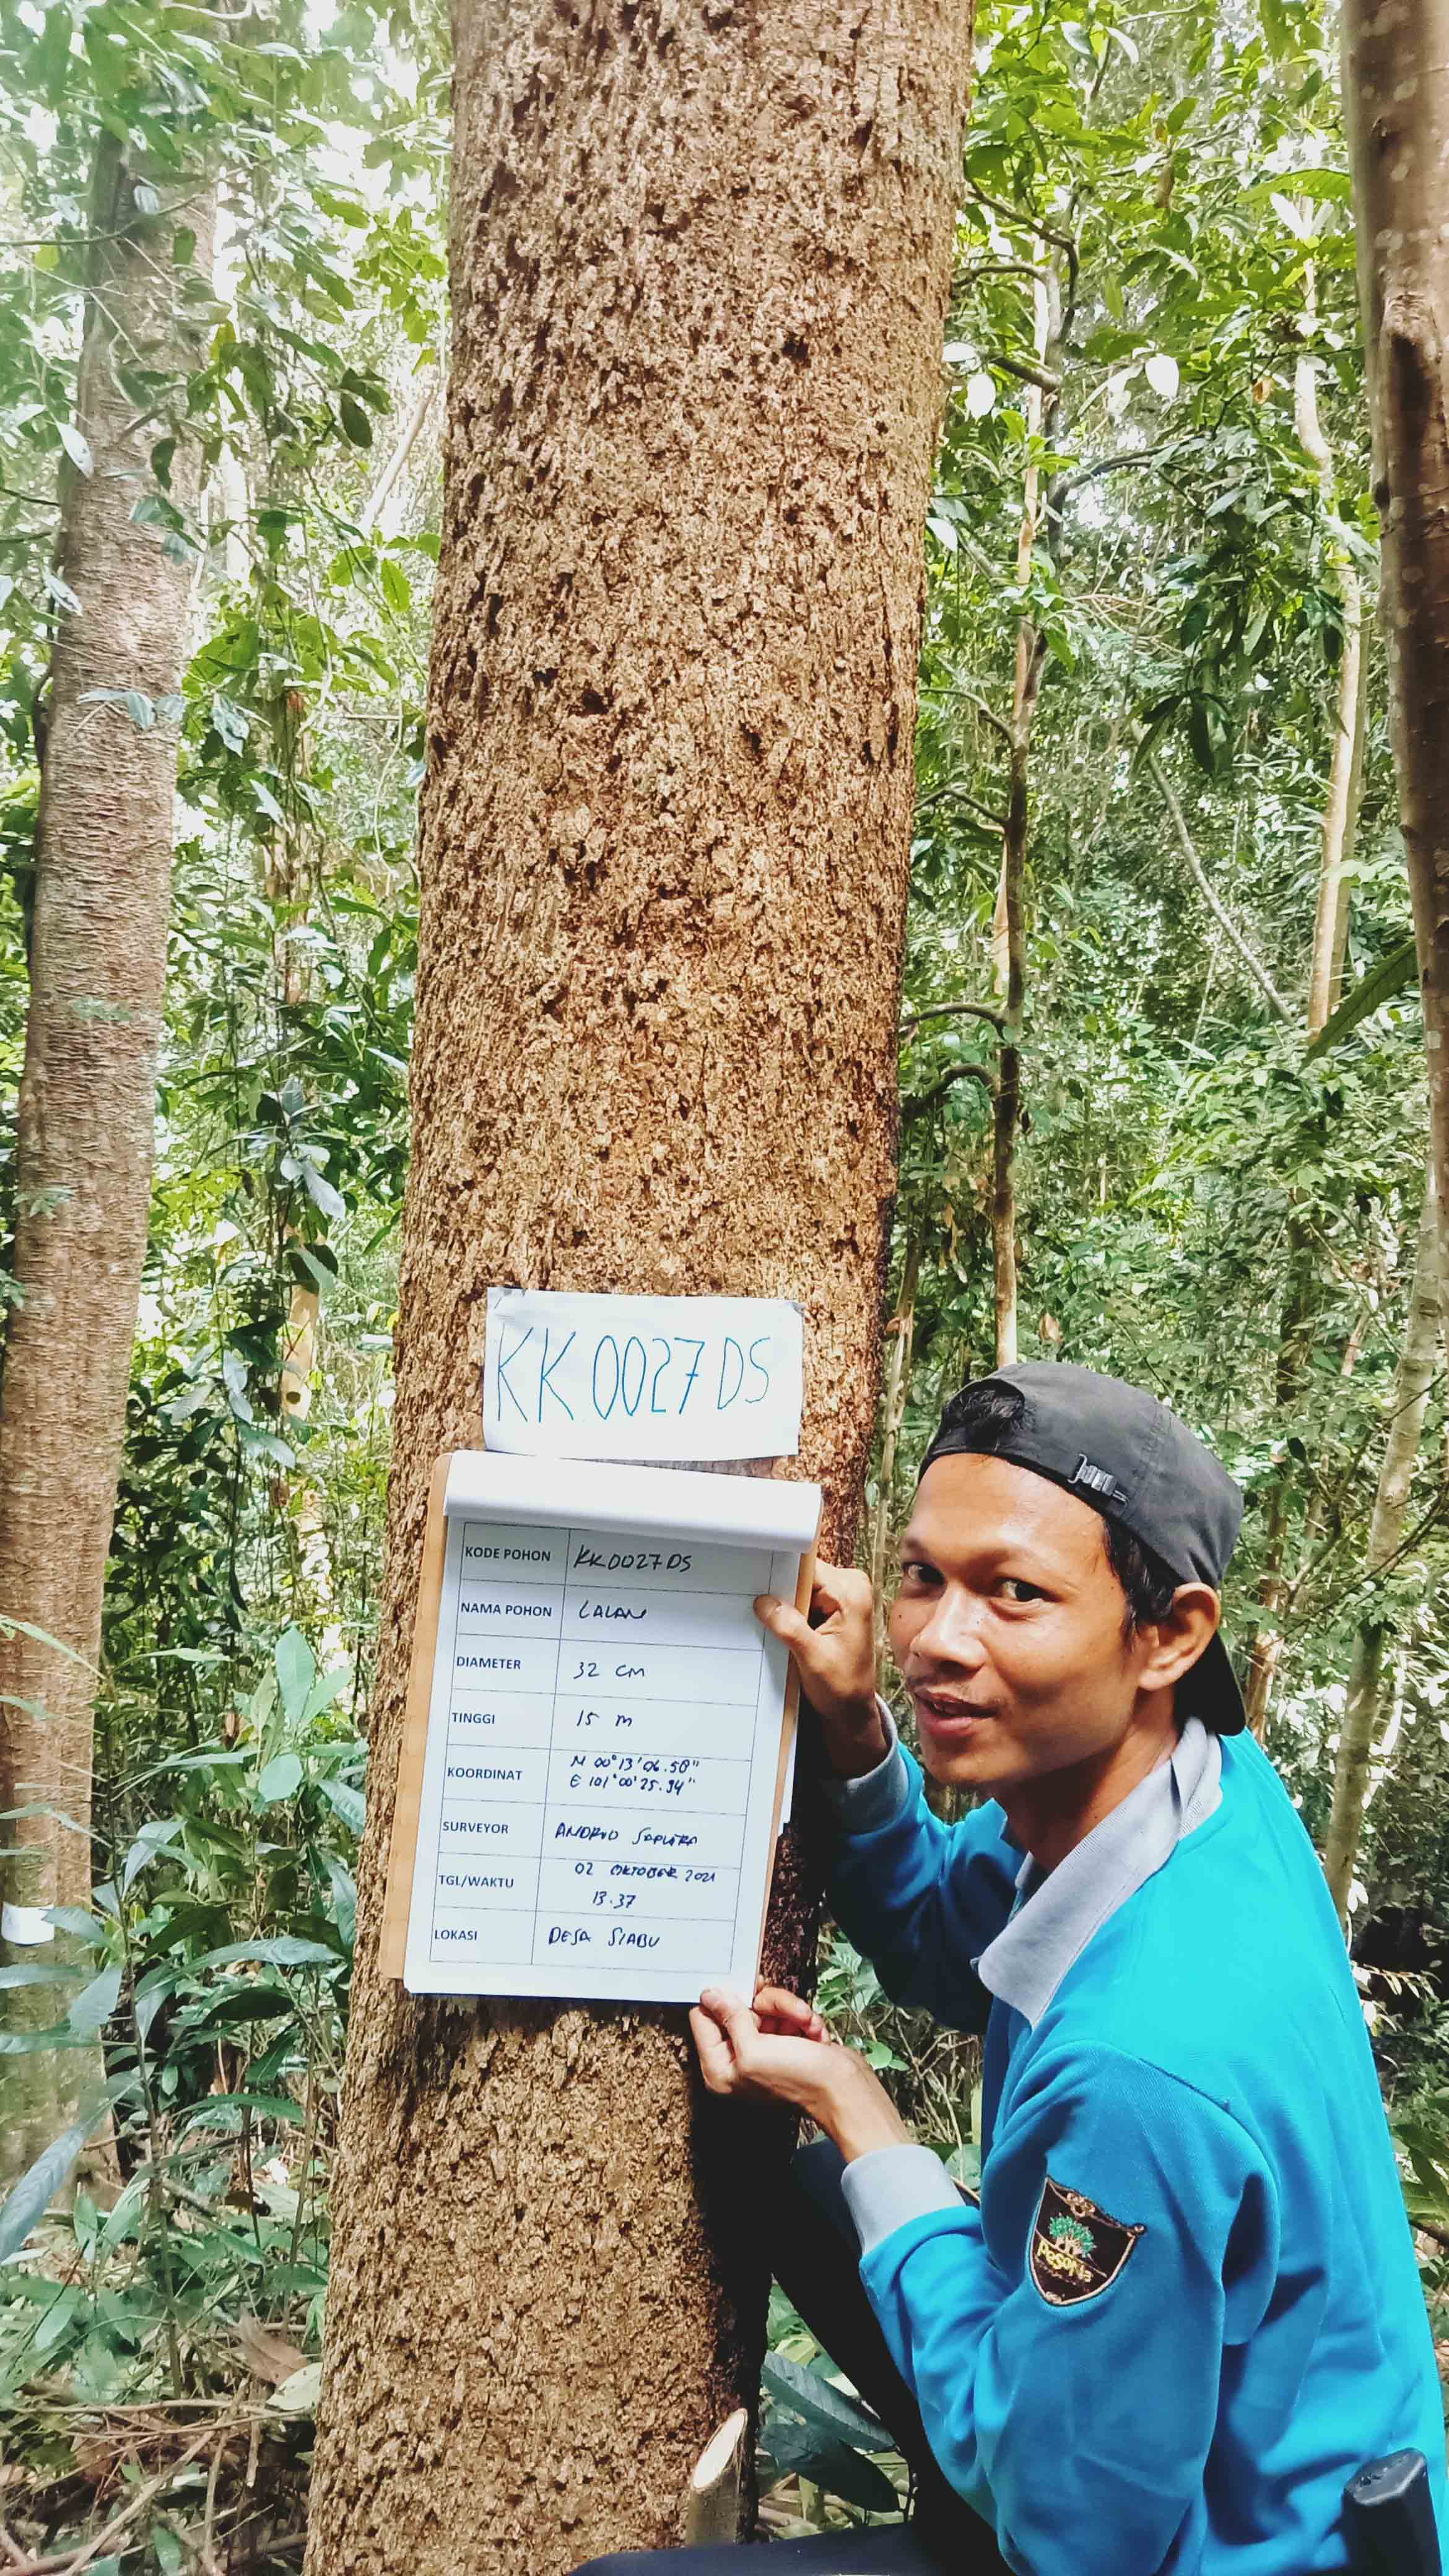 KK0027DS
KODE POHON KK0027DS
NAMA POHON LALAN
DIAMETER 32 CM
TINGGI 15 M
KOORDINAT N 00°13'06.58"
E 101°00'25.94"
SURVEYOR SAPUTRA
TGL/WAKTU 02 OKTOBER 2021
13.37
LOKASI DESA SIABU